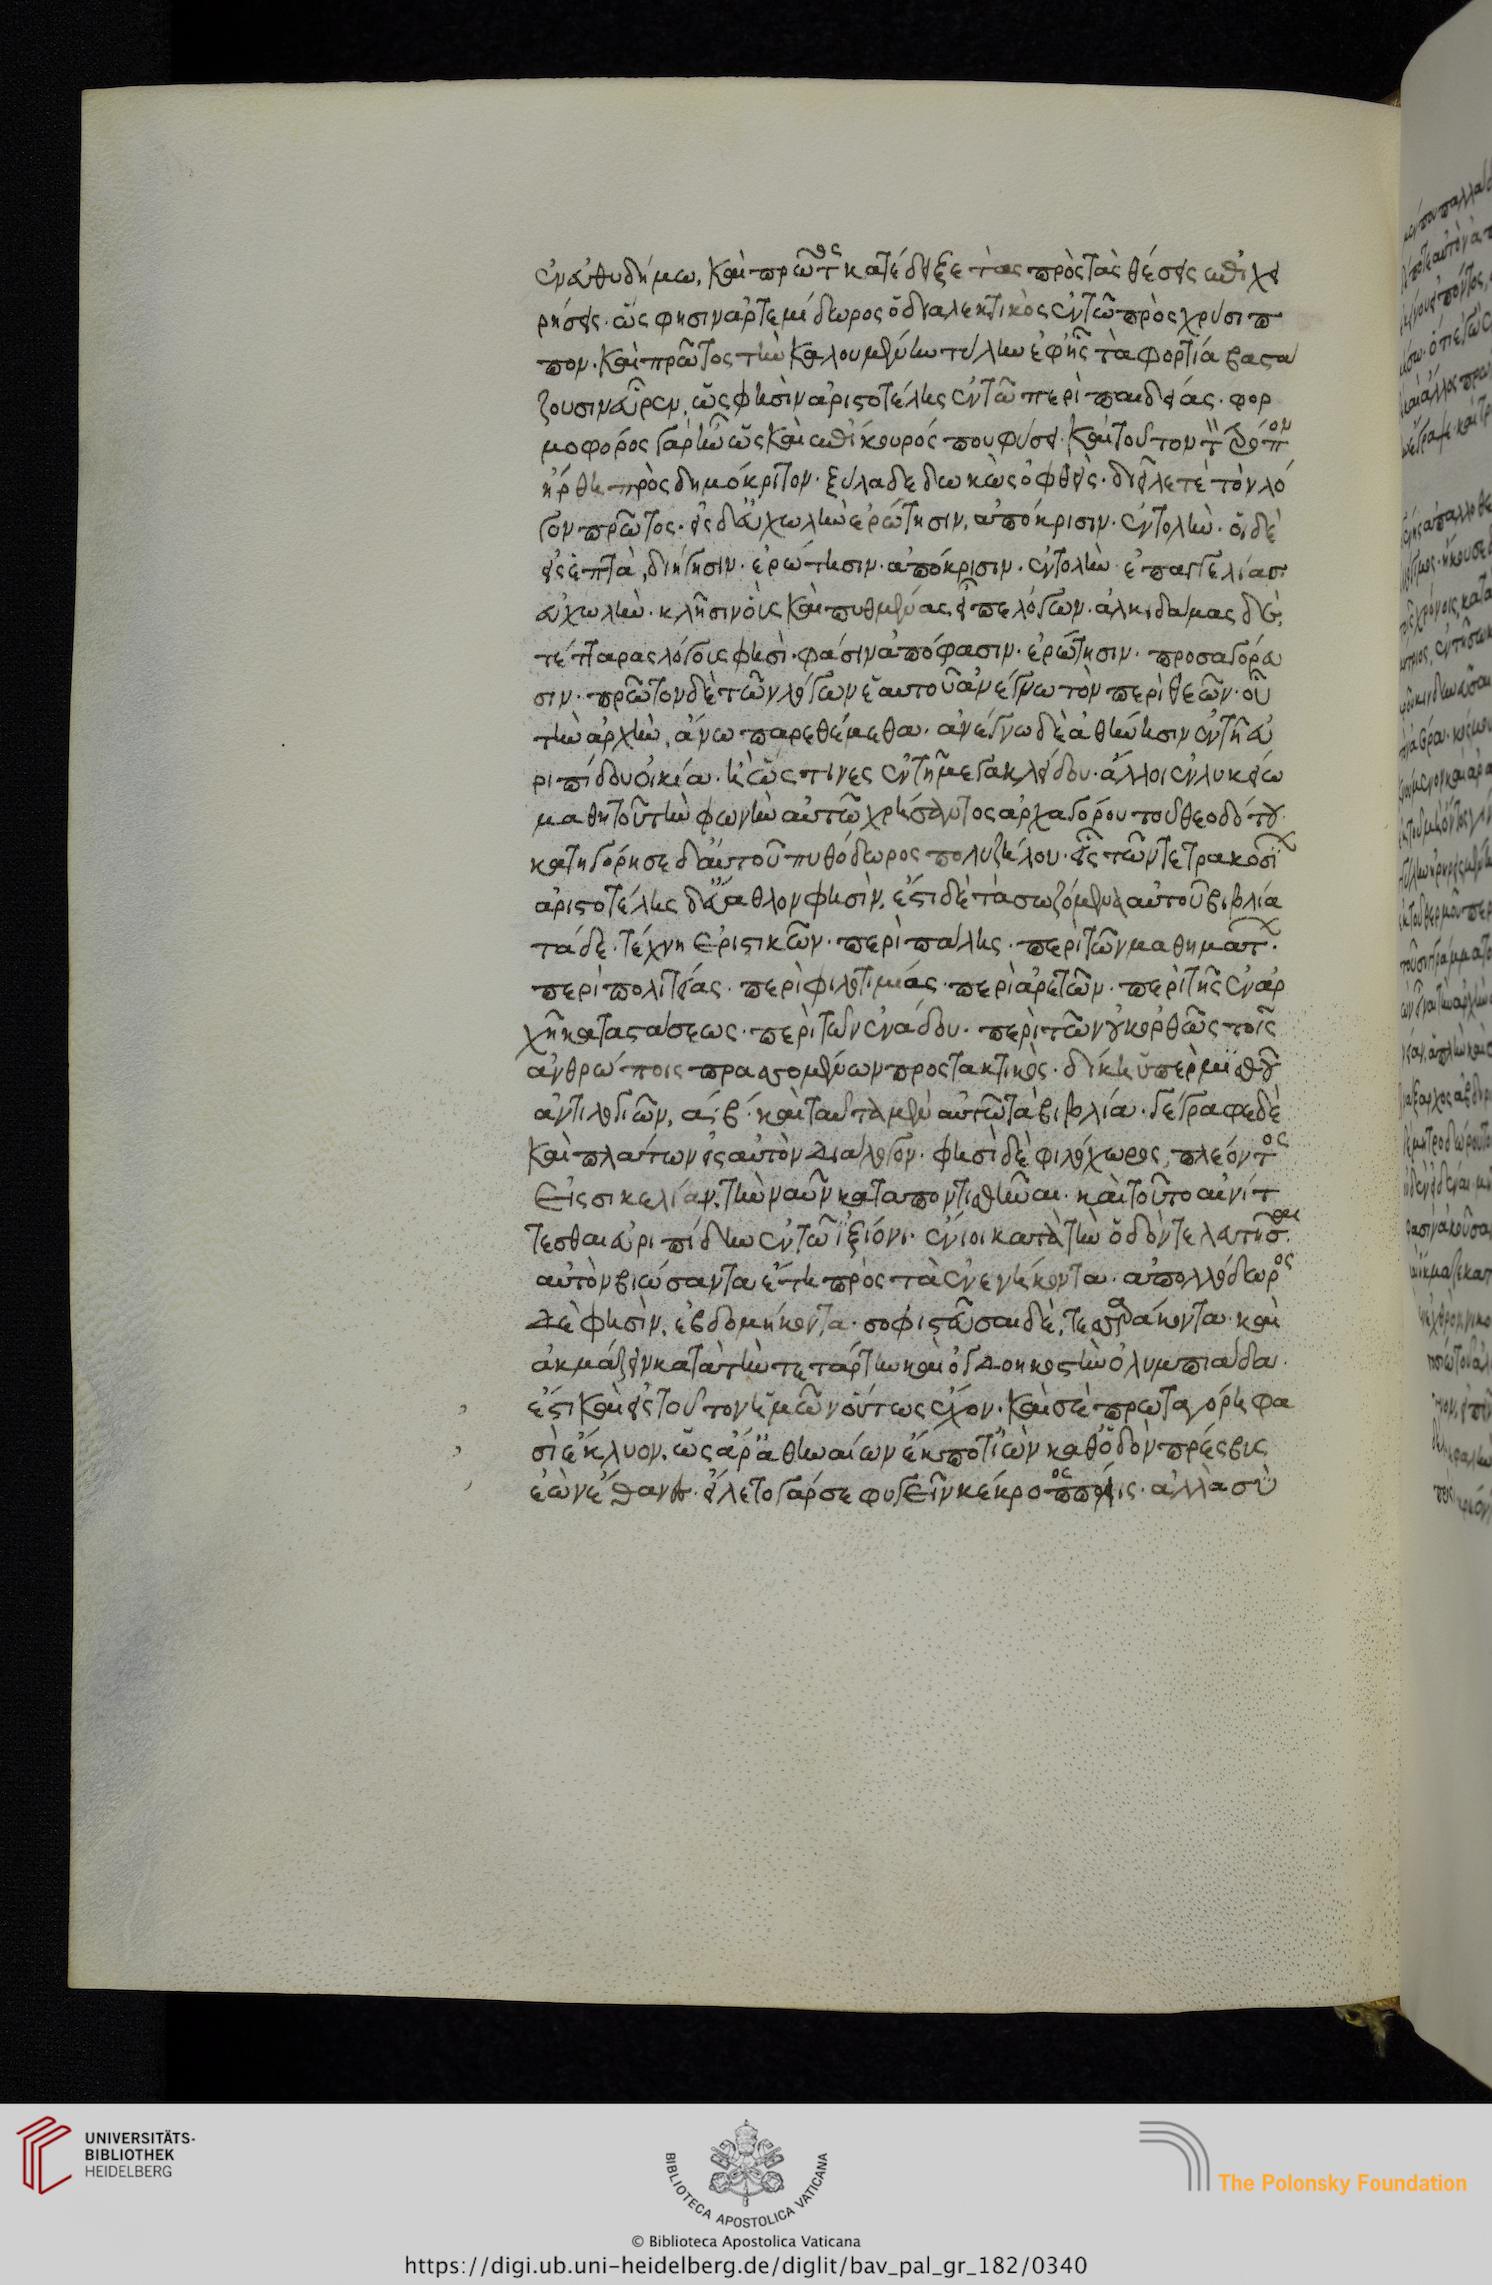 ἐν εὐθυδήμω, καὶ πρῶτος κατέδειξε τὰς πρὸς τὰς θέσεις ἐπιχει
ρήσεις· ὥς φησιν ἀρτεμίδωρος ὁ διαλεκτικὸς ἐν τῶ πρὸς χρύσιπ
πον· καὶ πρῶτος τὴν καλουμένην τύλην ἐφ' ἧς τὰ φορτία βαστά
ζουσιν εὗρεν, ὥς φησὶν ἀριστοτέλης ἐν τῶ περὶ παιδείας· φορ
μοφορός γὰρ ἦν ὥς καὶ ἐπίκουρός που φύσει· καὶ τοῦτον τὸν τρόπον
ἤρθη πρὸς δημόκριτον· ξύλα δεδωκὼς ὀφθείς· διεῖλε τὲ τὸν λό
γον πρῶτος· εἰς δ' εὐχωλὴν ἐρώτησιν, ἀπόκρισιν· ἐντολὴν· οἱ δὲ
εἰς ἑπτὰ, διήγησιν· ἐρώτησιν· ἀπόκρισιν· ἐντολὴν· ἐπαγγελίας·
εὐχωλὴν· κλῆσιν οἷς καὶ πυθμένας εἶπε λόγων· ἀλκιδάμας δὲ
τέτταρας λόγους φησὶ· φάσιν ἀπόφασιν· ἐρώτησιν· προσαγόρευ
σιν· πρῶτον δὲ τῶν λόγων ἑαυτοῦ ἀνέγνω τὸν περὶ θεῶν· οὗ
τὴν ἀρχὴν, ἄνω παρεθέμεθα· ἀνέγνω δὲ ἀθήνησιν ἐν τῆ εὐ
ριπίδου οἰκία· ἢ ὥς τινες ἐν τῆ μεγακλείδου· ἄλλοι ἐν λυκείω
μαθητοῦ τὴν φωνὴν αὐτῶ χρήσαντος ἀρχαγόρου τοῦ θεοδότου·
κατηγόρησε δ' αὐτοῦ πυθόδωρος πολυζήλου· εἷς τῶν τετρακοσί
ἀριστοτέλης δ' εὔαθλον φησὶν, ἔστι δὲ τὰ σωζόμενα αὐτοῦ βιβλία
τάδε· τέχνη ἐριστικῶν· περὶ πάλης· περὶ τῶν μαθημάτ·
περὶ πολιτείας· περὶ φιλοτιμίας· περὶ ἀρετῶν· περὶ τῆς ἐν ἀρ
χῆ καταστάσεως· περὶ τῶν ἐν ἅδου· περὶ τῶν οὐκ ὀρθῶς τοῖς
ἀνθρώποις πρασσομένων προστακτικὸς· δίκη ὑπὲρ μισθοῦ
ἀντιλογιῶν, α΄· β΄· καὶ ταῦτα μὲν αὐτῶ τὰ βιβλία· γέγραφε δὲ
καὶ πλάτων εἰς αὐτὸν διάλογον· φησὶ δὲ φιλόχωρος, πλέοντος
εἰς σικελίαν, τὴν ναῦν καταποντισθῆναι· καὶ τοῦτο αἰνίτ
τεσθαι εὐριπίδην ἐν τῶ ἰξίονι· ἔνιοι κατὰ τὴν ὁδὸν τελευτῆσαι
αὐτὸν βιώσαντα ἔτη πρὸς τὰ ἐνενήκοντα· ἀπολλόδωρος
δὲ φησὶν, ἑβδομήκοντα· σοφιστεῦσαι δὲ, τεσσαράκοντα· καὶ
ἀκμάζειν κατὰ τὴν τετάρτην καὶ ὀγδοηκοστὴν ὀλυμπιάδα·
ἔστι καὶ εἰς τοῦτον ἡμῶν οὕτως ἔχον· καὶ σὲ πρωταγόρη φα
σὶ ἔκλυον, ὡς ἄρ' ἀθηναίων ἔκ ποτ' ἰὼν καθ' ὁδὸν πρέσβυς
ἐὼν ἔθανες· εἵλετο γάρ σε φυγεῖν κέκροπος πόλις· ἀλλὰ σὺ
UNIVERSITÄTS-
BIBLIOTHEK
HEIDELBERG
BIBLIOTECA APOSTOLICA VATICANA
The Polonsky Foundation
© Biblioteca Apostolica Vaticana
https://digi.ub.uni-heidelberg.de/diglit/bav_pal_gr_182/0340